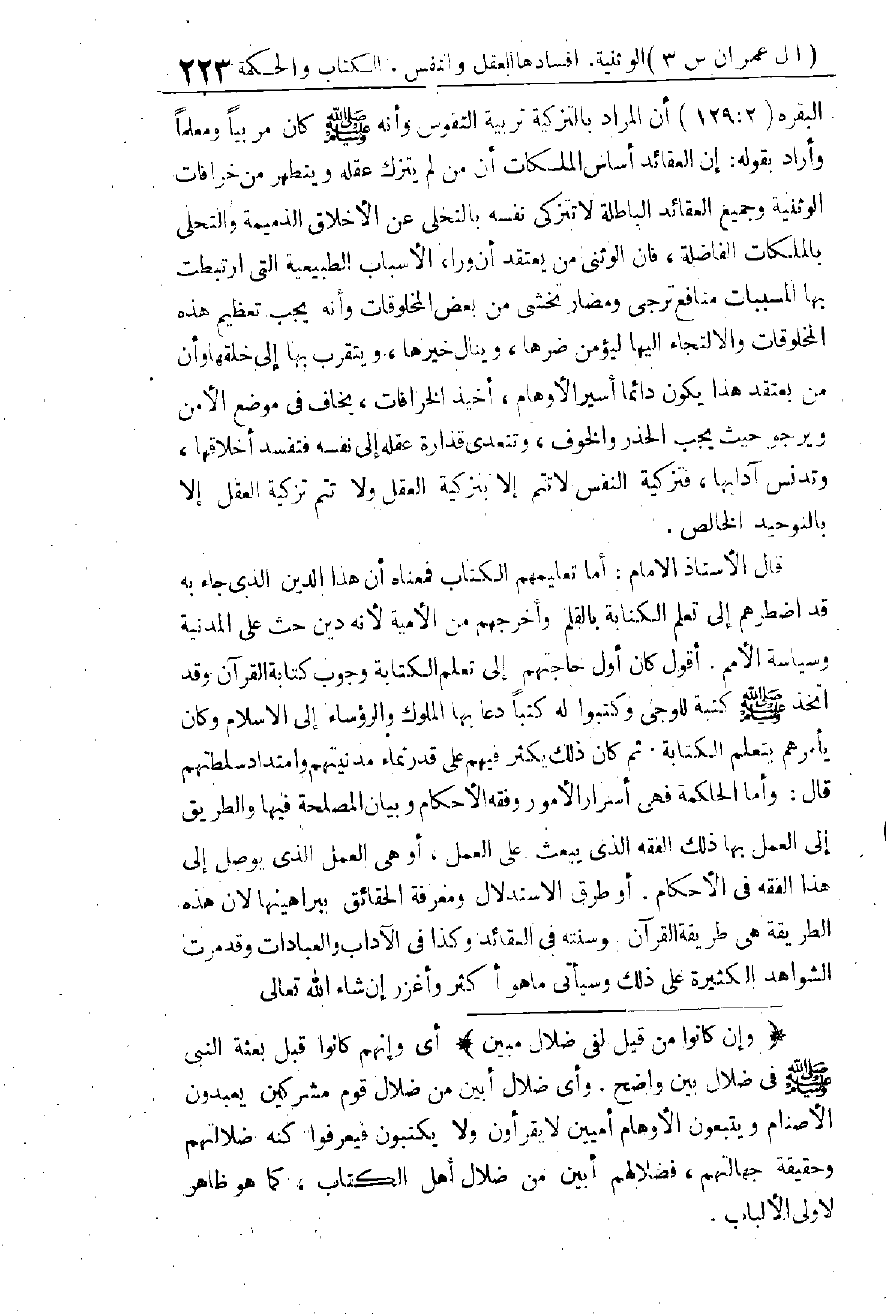 ( ال عمران س ٣ ) الوثنية. افسادها العقل والنفس . الكتاب والحكمة ٢٢٣
البقره ( ١٢٩:٢ ) أن المراد بالتزكية تربية النفوس وأنه ﷺ كان مربياً ومعلماً
وأراد بقوله: إن العقائد أساس الملكات أن من لم يتزك عقله ويتطهر من خرافات
الوثنية وجميع العقائد الباطلة لا تتزكى نفسه بالتخلى عن الأخلاق الذميمة والتحلى
بالملكات الفاضلة ، فان الوثنى من يعتقد أن وراء الأسباب الطبيعية التى ارتبطت
بها المسببات منافع ترجى ومضار تخشى من بعض المخلوقات وأنه يجب تعظيم هذه
المخلوقات والالتجاء اليها ليؤمن ضرها ، وينال خيرها ، ويتقرب بها إلى خلقها وأن
من يعتقد هذا يكون دائما أسير الأوهام ، أخيذ الخرافات ، يخاف فى موضع الأمن
ويرجو حيث يجب الحذر والخوف ، وتتعدى قذارة عقله إلى نفسه فتفسد أخلاقها ،
وتدنس آدابها ، فتزكية النفس لا تتم إلا بتزكية العقل ولا تتم تزكية العقل إلا
بالتوحيد الخالص .
قال الأستاذ الامام : أما تعليمهم الكتاب فمعناه أن هذا الدين الذى جاء به
قد اضطرهم إلى تعلم الكتابة بالقلم وأخرجهم من الأمية لأنه دين حث على المدنية
وسياسة الأمم . أقول كان أول حاجتهم إلى تعلم الكتابة وجوب كتابة القرآن وقد
اتخذ ﷺ كتبة للوحى وكتبوا له كتباً دعا بها الملوك والرؤساء إلى الاسلام وكان
يأمرهم بتعلم الكتابة . ثم كان ذلك يكثر فيهم على قدر نماء مدنيتهم وامتداد سلطتهم
قال : وأما الحكمة فهى أسرار الأمور وفقه الأحكام وبيان المصلحة فيها والطريق
إلى العمل بها ذلك الفقه الذى يبعث على العمل ، أو هى العمل الذى يوصل إلى
هذا الفقه فى الأحكام . أو طرق الاستدلال ومعرفة الحقائق ببراهينها لان هذه
الطريقة هى طريقة القرآن وسنته فى العقائد وكذا فى الآداب والعبادات وقد مرت
الشواهد الكثيرة على ذلك وسيأتى ماهو أكثر وأغزر إن شاء الله تعالى
﴿ وإن كانوا من قبل لفى ضلال مبين ﴾ أى وإنهم كانوا قبل بعثة النبى
ﷺ فى ضلال بين واضح . وأى ضلال أبين من ضلال قوم مشركين يعبدون
الأصنام ويتبعون الأوهام أميين لا يقرأون ولا يكتبون فيعرفوا كنه ضلالتهم
وحقيقة جهالتهم ، فضلالهم أبين من ضلال أهل الكتاب ، كما هو ظاهر
لاولى الألباب .